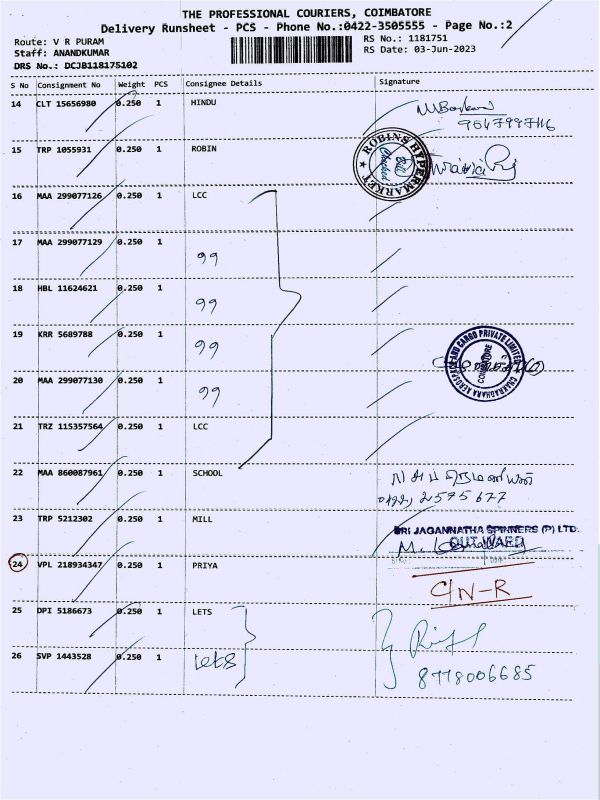 THE PROFESSIONAL COURIERS, COIMBATORE
Delivery Runsheet - PCS - Phone No.:0422-3505555 - Page No.:2
Route: V R PURAM
RS No.: 1181751
Staff: ANANDKUMAR
RS Date: 03-Jun-2023
DRS No.: DCJB118175102
S No Consignment No Weight PCS Consignee Details Signature
14 CLT 15656980 0.250 1 HINDU
15 TRP 1055931 0.250 1 ROBIN
ROBINS HYPERMARKET
16 MAA 299077126 0.250 1 LCC
17 MAA 299077129 0.250 1 99
18 HBL 11624621 0.250 1 99
19 KRR 5689788 0.250 1 99
CHAKRADHARA AEROSPACE AND CARGO PRIVATE LIMITED
COIMBATORE
20 MAA 299077130 0.250 1 99
21 TRZ 115357564 0.250 1 LCC
22 MAA 860087961 0.250 1 SCHOOL
2575677
23 TRP 5212302 0.250 1 MILL
SRI JAGANNATHA SPINNERS (P) LTD.
OUT WARD
24 VPL 218934347 0.250 1 PRIYA
C/N-R
25 DPI 5186673 0.250 1 LETS
26 SVP 1443528 0.250 1 Lets
8778006685